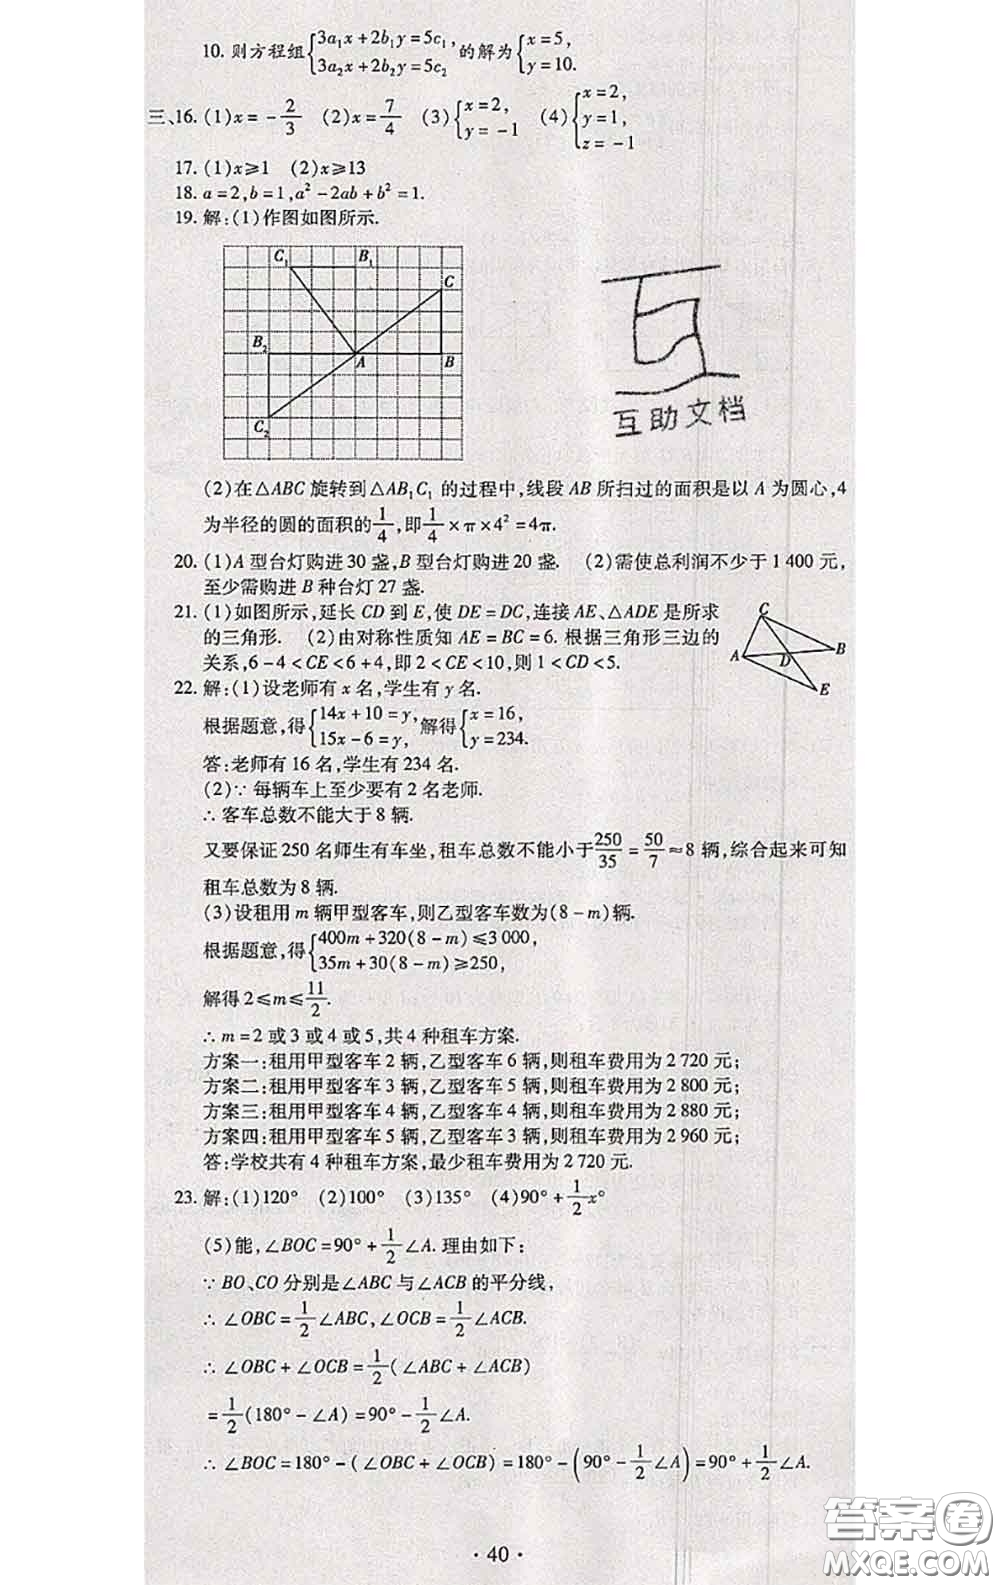 10. 则方程组{3a₁x+2b₁y=5c₁, 3a₂x+2b₂y=5c₂ 的解为{x=5, y=10.
三、16. (1)x=-2/3 (2)x=7/4 (3){x=2, y=-1 (4){x=2, y=1, z=-1
17. (1)x≥1 (2)x≥13
18. a=2,b=1,a²-2ab+b²=1.
19. 解:(1)作图如图所示.
C₁ B₁
C
B₂
A B
C₂
互助文档
(2)在△ABC旋转到△AB₁C₁的过程中,线段AB所扫过的面积是以A为圆心,4
为半径的圆的面积的1/4,即1/4×π×4²=4π.
20. (1)A型台灯购进30盏,B型台灯购进20盏. (2)需使总利润不少于1 400元,
至少需购进B种台灯27盏.
21. (1)如图所示,延长CD到E,使DE=DC,连接AE、△ADE是所求
的三角形. (2)由对称性质知AE=BC=6.根据三角形三边的
关系,6-4<CE<6+4,即2<CE<10,则1<CD<5.
C
A D B
E
22. 解:(1)设老师有x名,学生有y名.
根据题意,得{14x+10=y, 15x-6=y, 解得{x=16, y=234.
答:老师有16名,学生有234名.
(2)∵每辆车上至少要有2名老师.
∴客车总数不能大于8辆.
又要保证250名师生有车坐,租车总数不能小于250/35=50/7≈8辆,综合起来可知
租车总数为8辆.
(3)设租用m辆甲型客车,则乙型客车数为(8-m)辆.
根据题意,得{400m+320(8-m)≤3 000, 35m+30(8-m)≥250,
解得2≤m≤11/2.
∴m=2或3或4或5,共4种租车方案.
方案一:租用甲型客车2辆,乙型客车6辆,则租车费用为2 720元;
方案二:租用甲型客车3辆,乙型客车5辆,则租车费用为2 800元;
方案三:租用甲型客车4辆,乙型客车4辆,则租车费用为2 880元;
方案四:租用甲型客车5辆,乙型客车3辆,则租车费用为2 960元;
答:学校共有4种租车方案,最少租车费用为2 720元.
23. 解:(1)120° (2)100° (3)135° (4)90°+1/2x°
(5)能,∠BOC=90°+1/2∠A.理由如下:
∵BO、CO分别是∠ABC与∠ACB的平分线,
∴∠OBC=1/2∠ABC,∠OCB=1/2∠ACB.
∴∠OBC+∠OCB=1/2(∠ABC+∠ACB)
=1/2(180°-∠A)=90°-1/2∠A.
∴∠BOC=180°-(∠OBC+∠OCB)=180°-(90°-1/2∠A)=90°+1/2∠A.
·40·
答案圈
MXQE.COM